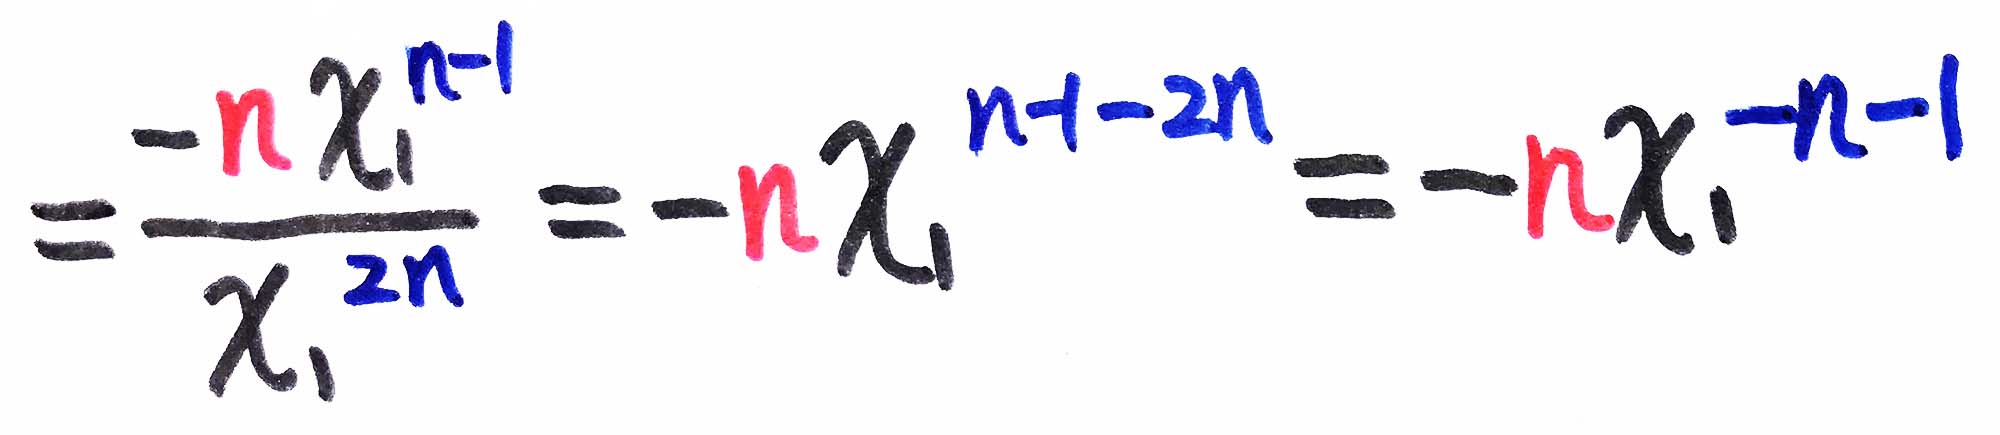 = \frac{-n x_1^{n-1}}{x_1^{2n}} = -n x_1^{n-1-2n} = -n x_1^{-n-1}